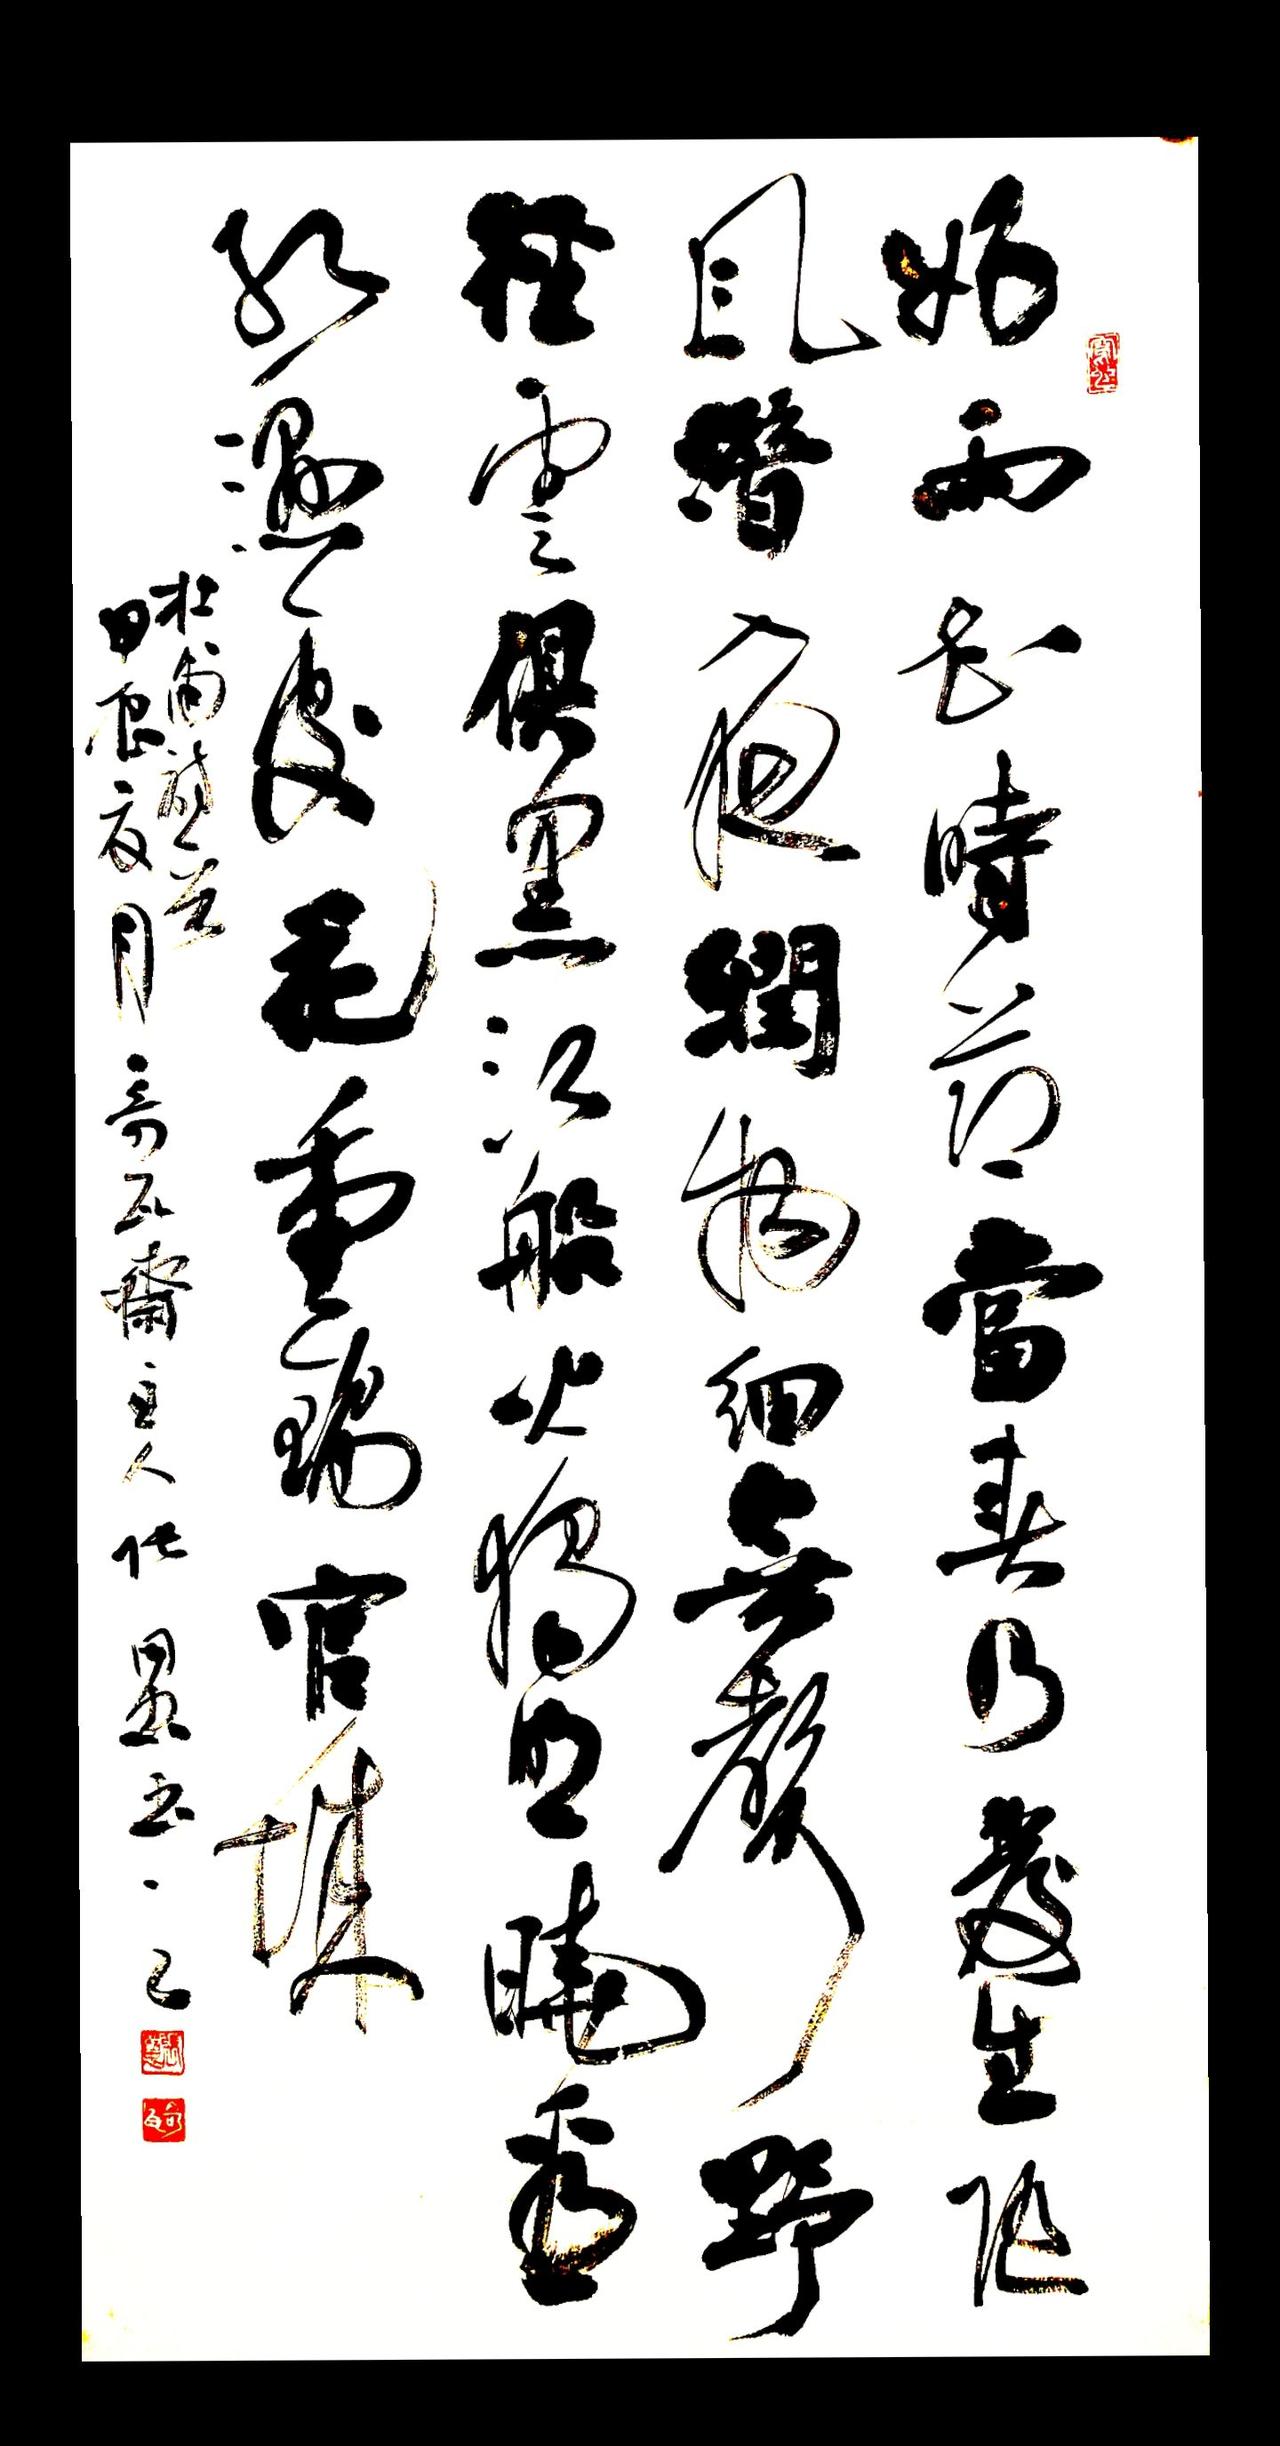 好雨知時節當春乃發生隨
風潛入夜潤物細無聲野
徑雲俱黑江船火獨明曉看
紅濕處花重錦官城
杜甫詩
甲辰夏月 齋主人張